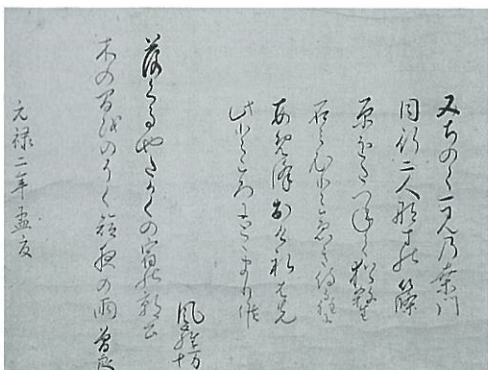 みちのく一見の桑門
同行二人那すの篠
原をたつねて猶殺生
石みむと急き侍る程に
あめ降出けれは先
此ところにとゝまり候
風羅坊
落くるやたかくの宿の郭公
木の間をのそく短夜の雨 曽良
元禄二年孟夏